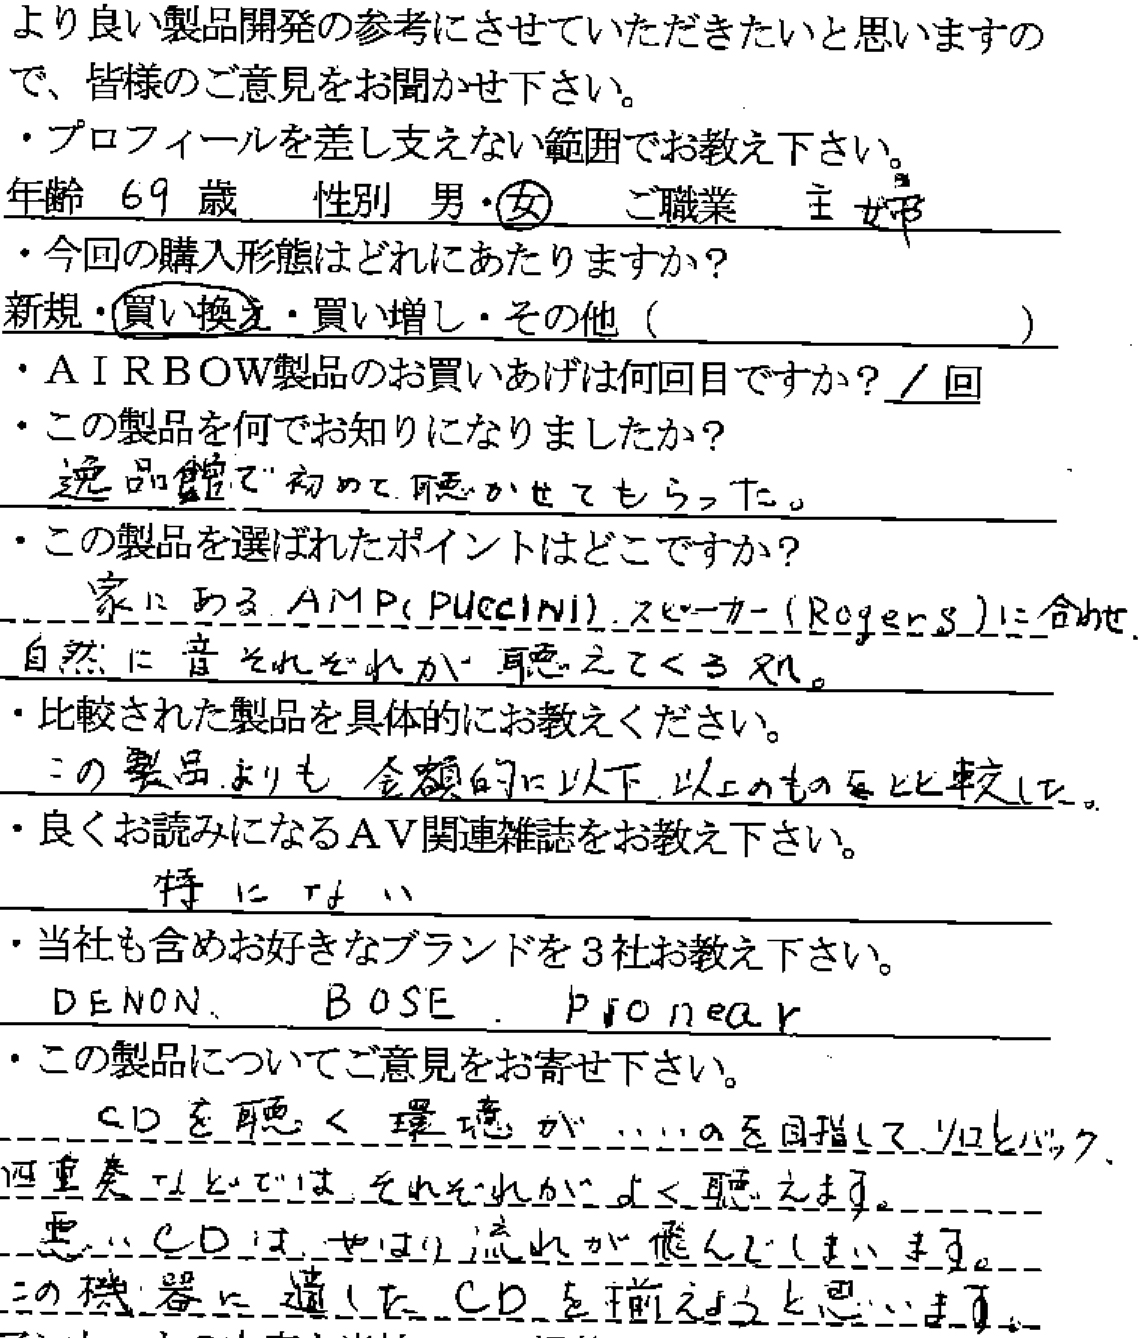 より良い製品開発の参考にさせていただきたいと思いますの
で、皆様のご意見をお聞かせ下さい。
・プロフィールを差し支えない範囲でお教え下さい。
年齢 69 歳 性別 男・女 ご職業 主婦
・今回の購入形態はどれにあたりますか？
新規・買い換え・買い増し・その他（ ）
・ＡＩＲＢＯＷ製品のお買いあげは何回目ですか？ / 回
・この製品を何でお知りになりましたか？
逸品館で初めて聴かせてもらった。
・この製品を選ばれたポイントはどこですか？
家にある AMP(PUCCINI) スピーカー(Rogers)に合わせ
自然に音それぞれが聴えてくる
・比較された製品を具体的にお教えください。
この製品よりも金額的に以下 以上のものと比較した。
・良くお読みになるＡＶ関連雑誌をお教え下さい。
特にない
・当社も含めお好きなブランドを３社お教え下さい。
DENON. BOSE. Pionear
・この製品についてご意見をお寄せ下さい。
CDを聴く環境が‥‥のを目指して ソロとバック、
四重奏などでは それぞれがよく聴えます。
悪いCDは やはり流れが飛んでしまいます。
この機器に適したCDを揃えようと思います。